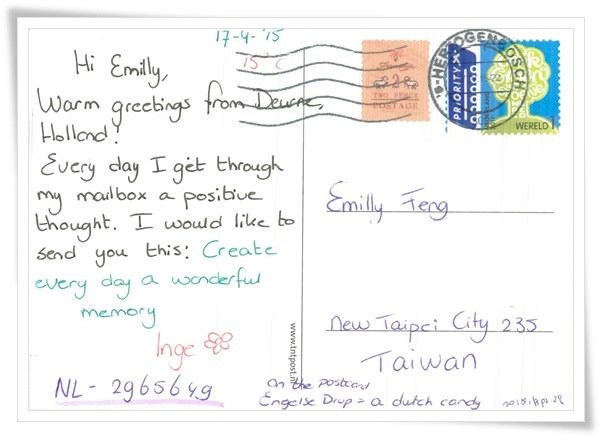 17-4-'15
15°C
Hi Emilly,
Warm greetings from Deurne,
Holland!
Every day I get through
my mailbox a positive
thought. I would like to
send you this: Create
every day a wonderful
memory
Inge
NL - 2965649
TWO PENCE
POSTAGE
's-HERTOGENBOSCH
PRIORITY
NEDERLAND
WERELD 1
Emilly Feng
New Taipei City 235
Taiwan
www.tntpost.nl
on the postcard
Engelse Drop = a dutch candy